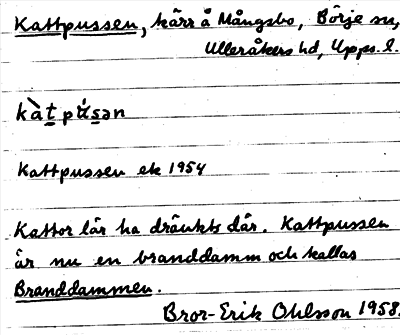 Kattpussen, kärr å Mångsbo, Börje sn,
Ulleråkers hd, Upps. l.
kàt pɯ́sən
Kattpussen ek 1954
Kattor lär ha dränkts där. Kattpussen
är nu en branddamm och kallas
Branddammen.
Bror-Erik Ohlsson 1958.